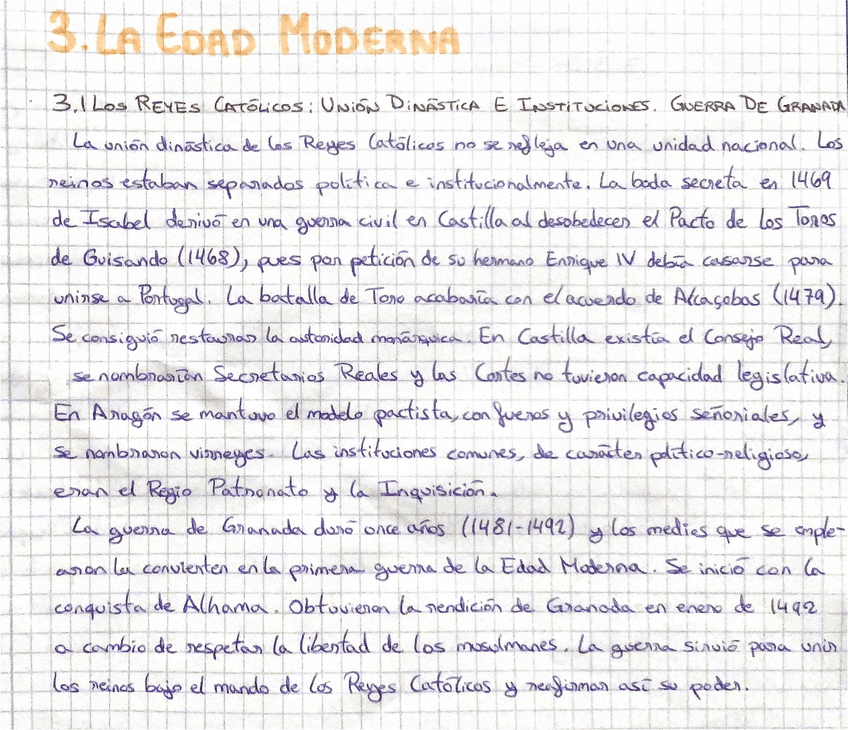 3. LA EDAD MODERNA
3.1 LOS REYES CATÓLICOS: UNIÓN DINÁSTICA E INSTITUCIONES. GUERRA DE GRANADA
La unión dinástica de los Reyes Católicos no se refleja en una unidad nacional. Los
reinos estaban separados política e institucionalmente. La boda secreta en 1469
de Isabel derivó en una guerra civil en Castilla al desobedecer el Pacto de los Toros
de Guisando (1468), pues por petición de su hermano Enrique IV debía casarse para
unirse a Portugal. La batalla de Toro acabaría con el acuerdo de Alcaçobas (1479).
Se consiguió restaurar la autoridad monárquica. En Castilla existía el Consejo Real,
se nombrarían Secretarios Reales y las Cortes no tuvieron capacidad legislativa.
En Aragón se mantuvo el modelo pactista, con fueros y privilegios señoriales, y
se nombraron virreyes. Las instituciones comunes, de carácter político-religioso,
eran el Regio Patronato y la Inquisición.
La guerra de Granada duró once años (1481-1492) y los medios que se emple-
aron la convierten en la primera guerra de la Edad Moderna. Se inició con la
conquista de Alhama. Obtuvieron la rendición de Granada en enero de 1492
a cambio de respetar la libertad de los musulmanes. La guerra sirvió para unir
los reinos bajo el mando de los Reyes Católicos y reafirmar así su poder.